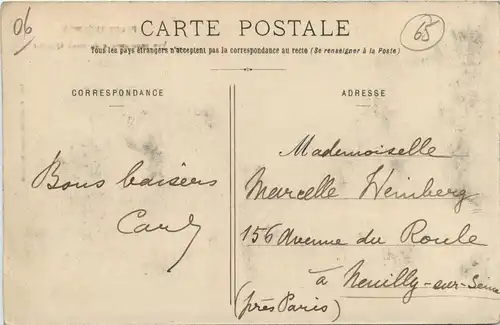 06
CARTE POSTALE
65
Tous les pays étrangers n'acceptent pas la correspondance au recto (Se renseigner à la Poste)
CORRESPONDANCE
ADRESSE
Bons baisers
Mademoiselle
Marcelle Weinberg
156 Avenue du Roule
à Neuilly-sur-Seine
(près Paris)